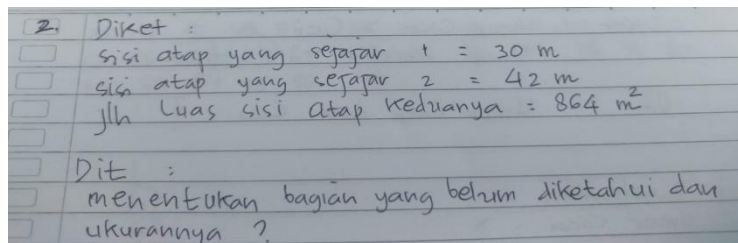 2. Diket :
sisi atap yang sejajar 1 = 30 m
sisi atap yang sejajar 2 = 42 m
jlh Luas sisi atap keduanya = 864 m²
Dit :
menentukan bagian yang belum diketahui dan
ukurannya ?